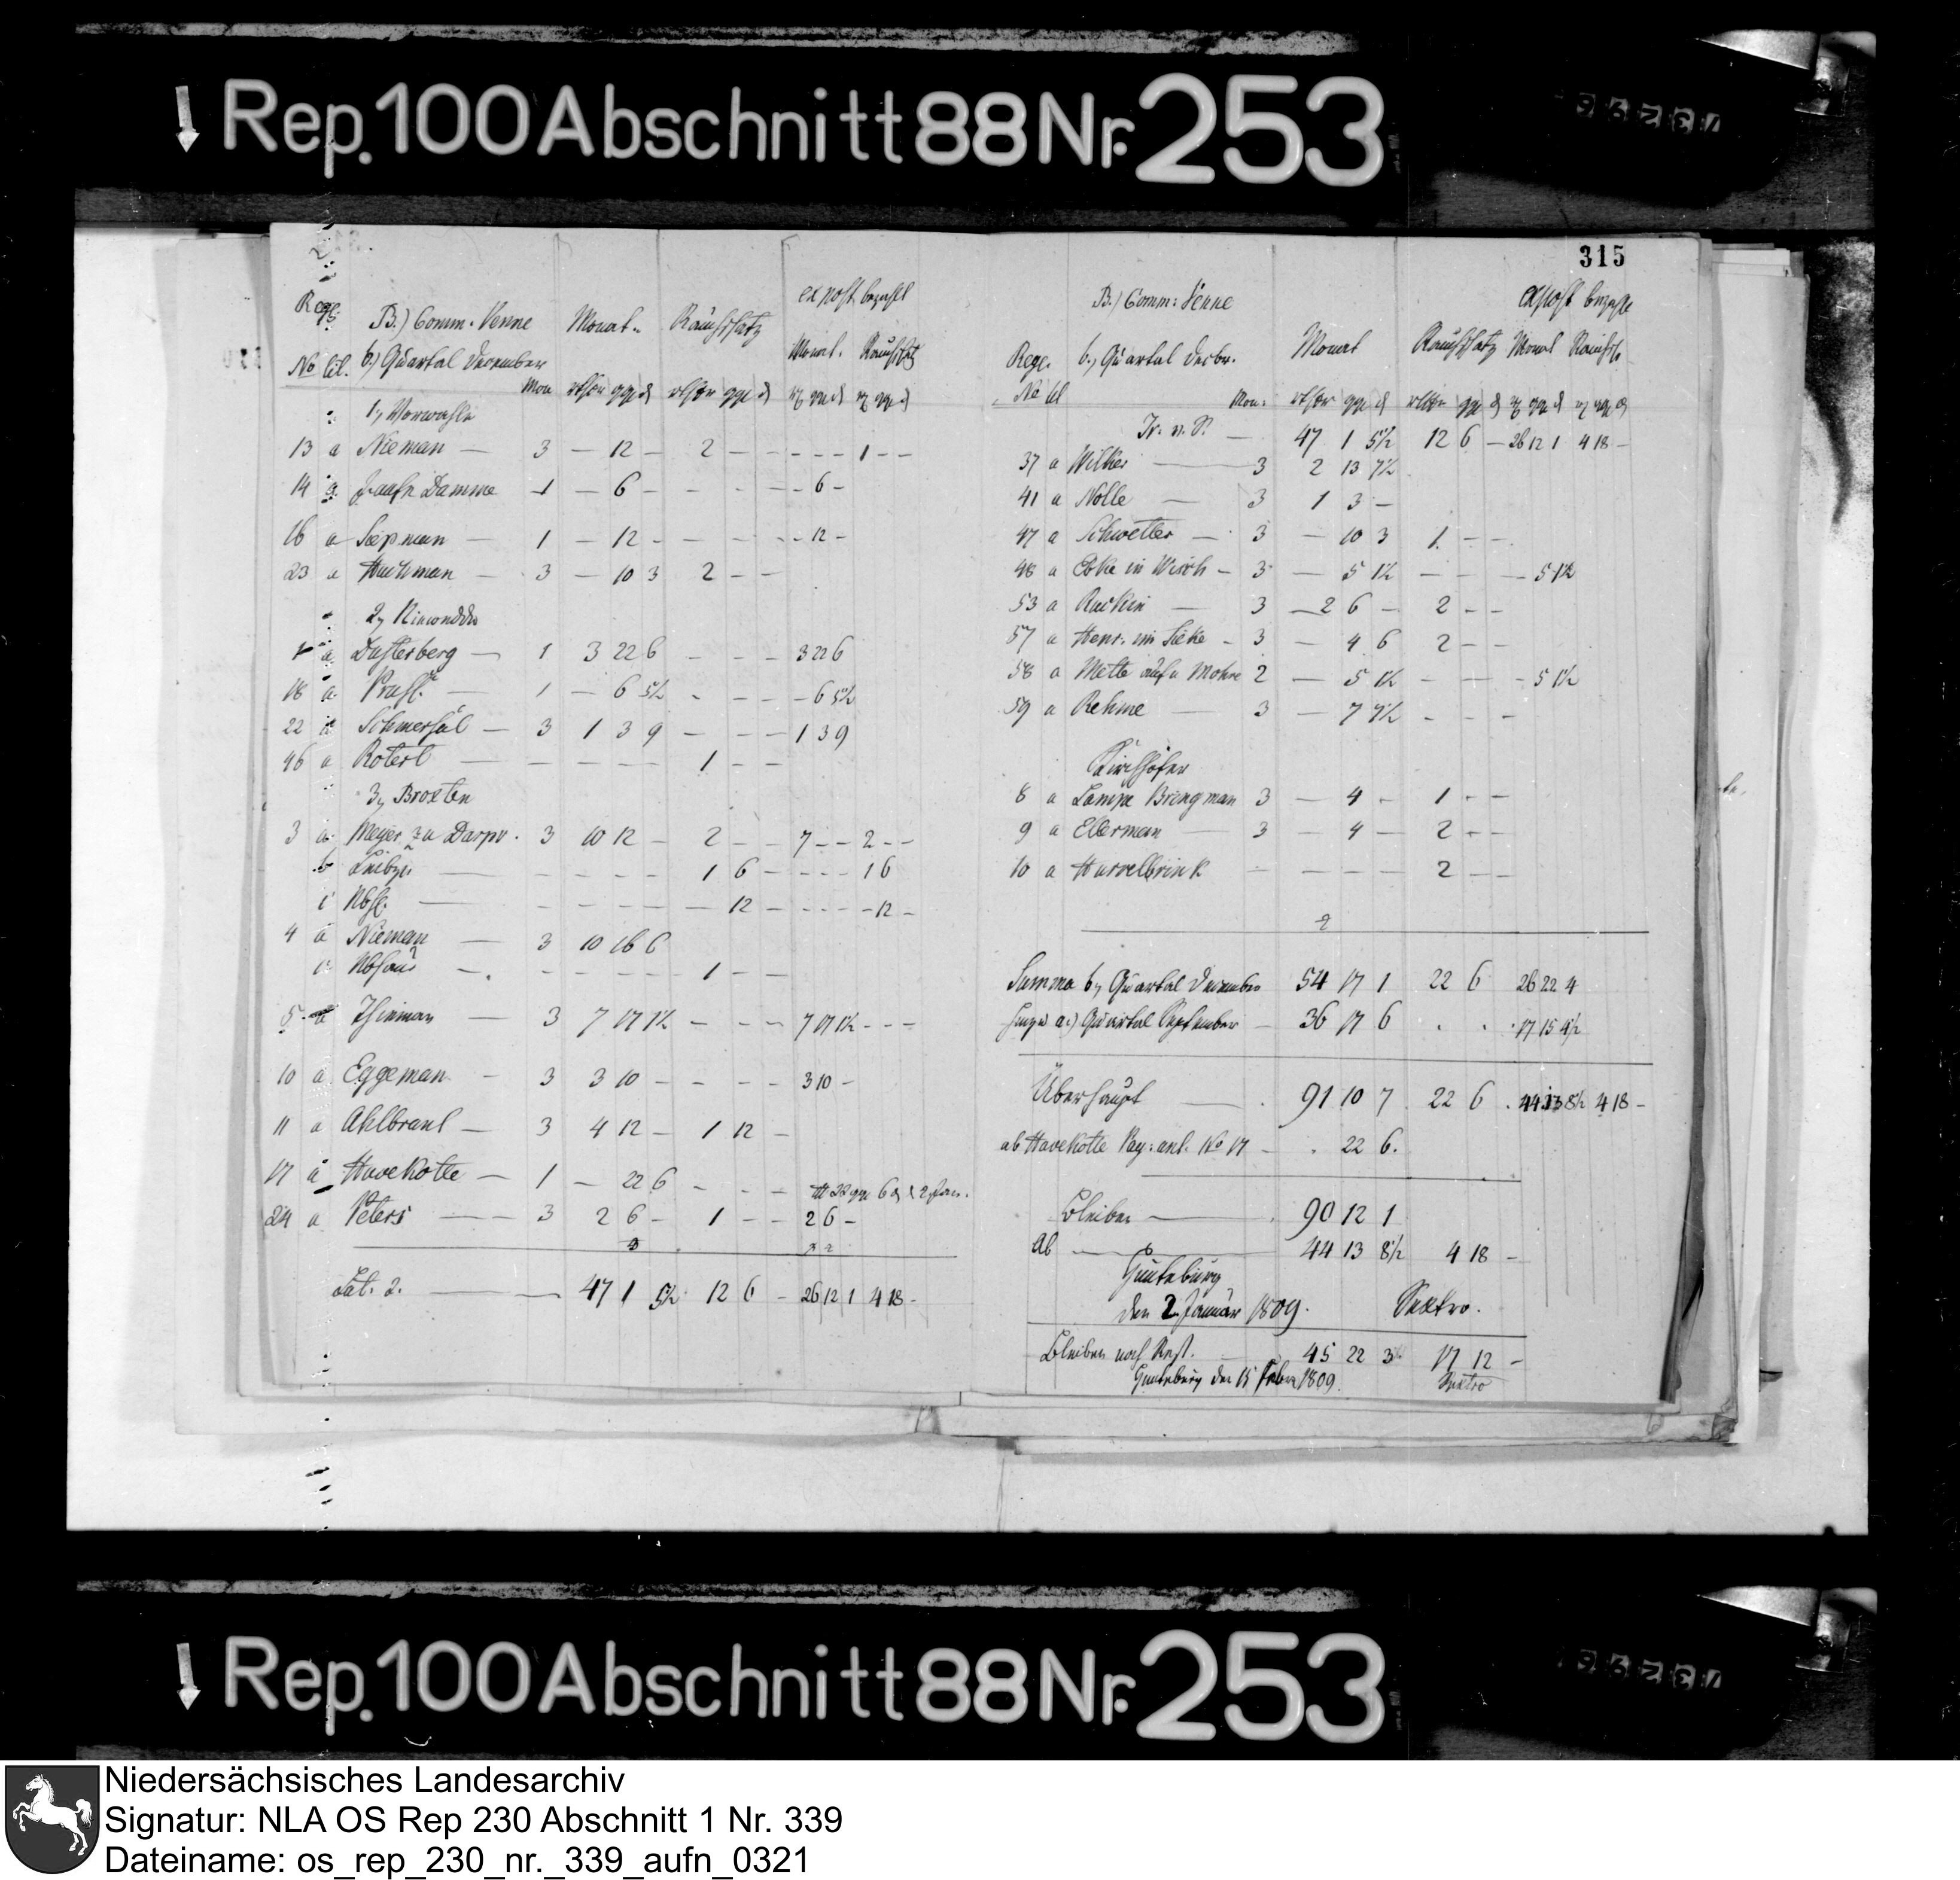 Rep. 100 Abschnitt 88 Nr. 253
315
Reg.
No lit.
B.) Comm. Venne
b.) Quartal December
Mon.
Monat.
Rauchschatz
ex post bezahlt
Monat. Rauchschatz
1, Vorwahle
13 a Nieman — 3 — 12 — 2 — — — — — 1 — —
14 a Damme 1 — 6 — — — — — 6 —
16 a Siepman — 1 — 12 — — — — — 12 —
23 a Huchman — 3 — 10 3 2 — —
2,
1 a Dusterberg — 1 3 22 6 — — — 3 22 6
18 a 1 — 6 5½ — — — — 6 5½
22 a Schmersal — 3 1 3 9 — — — 1 3 9
46 a Rotert — — — — — 1 — —
3, Broxten
3 a Meyer zu Darpv. 3 10 12 — 2 — — 7 — — 2 — —
b — — — — 1 6 — — — — 1 6
c — — — — — 12 — — — — — 12 —
4 a Nieman — 3 10 16 6
— — — — — 1 — —
5 a Thinman — 3 7 17 1½ — — — 7 17 1½ — — —
10 a Eggeman — 3 3 10 — — — — 3 10 —
11 a Ahlbrant — 3 4 12 — 1 12 —
17 a Havekotte — 1 — 22 6 — — — 22 gg 6 d 2 Jan.
24 a Peters — 3 2 6 — 1 — — 2 6 —
Lat. 2. — 47 1 5½ 12 6 — 26 12 1 4 18 —
B.) Comm: Venne
Reg.
No lit
b., Quartal Decbr.
Mon.
Monat
Rauchschatz
expost bezahlt
Monat
Tr. v. S. — 47 1 5½ 12 6 — 26 12 1 4 18 —
37 a Wilker — 3 2 13 7½
41 a Nolle — 3 1 3 —
47 a Schwetter — 3 — 10 3 1 — —
48 a Ebke in Wirch — 3 — 5 1½ — — — 5 1½
53 a — 3 — 2 6 — 2 — —
57 a Henr. im Sieke — 3 — 4 6 2 — —
58 a Mette aufn Mohre 2 — 5 1½ — — — 5 1½
59 a Rehme — 3 — 7 7½ — — —
Kirchhöfer
8 a Lampe Bringman 3 — 4 — 1 — —
9 a Ellerman — 3 — 4 — 2 — —
10 a Havelbrink — — — — 2 — —
Summa b, Quartal December 54 17 1 22 6 26 22 4
a.) Quartal September — 36 17 6 . . 17 15 4½
Überhaupt — 91 10 7 22 6 . 44 13 8½ 4 18 —
ab Havekotte Reg: ant. No 17 — . 22 6.
Bleiben — 90 12 1
Ab — 44 13 8½ 4 18 —
Hunteburg
den 2. Januar 1809. Sextro.
Bleiben noch Rest. 45 22 3½ 17 12 —
Hunteburg den 15 Febr. 1809. Sextro
Rep. 100 Abschnitt 88 Nr. 253
Niedersächsisches Landesarchiv
Signatur: NLA OS Rep 230 Abschnitt 1 Nr. 339
Dateiname: os_rep_230_nr._339_aufn_0321